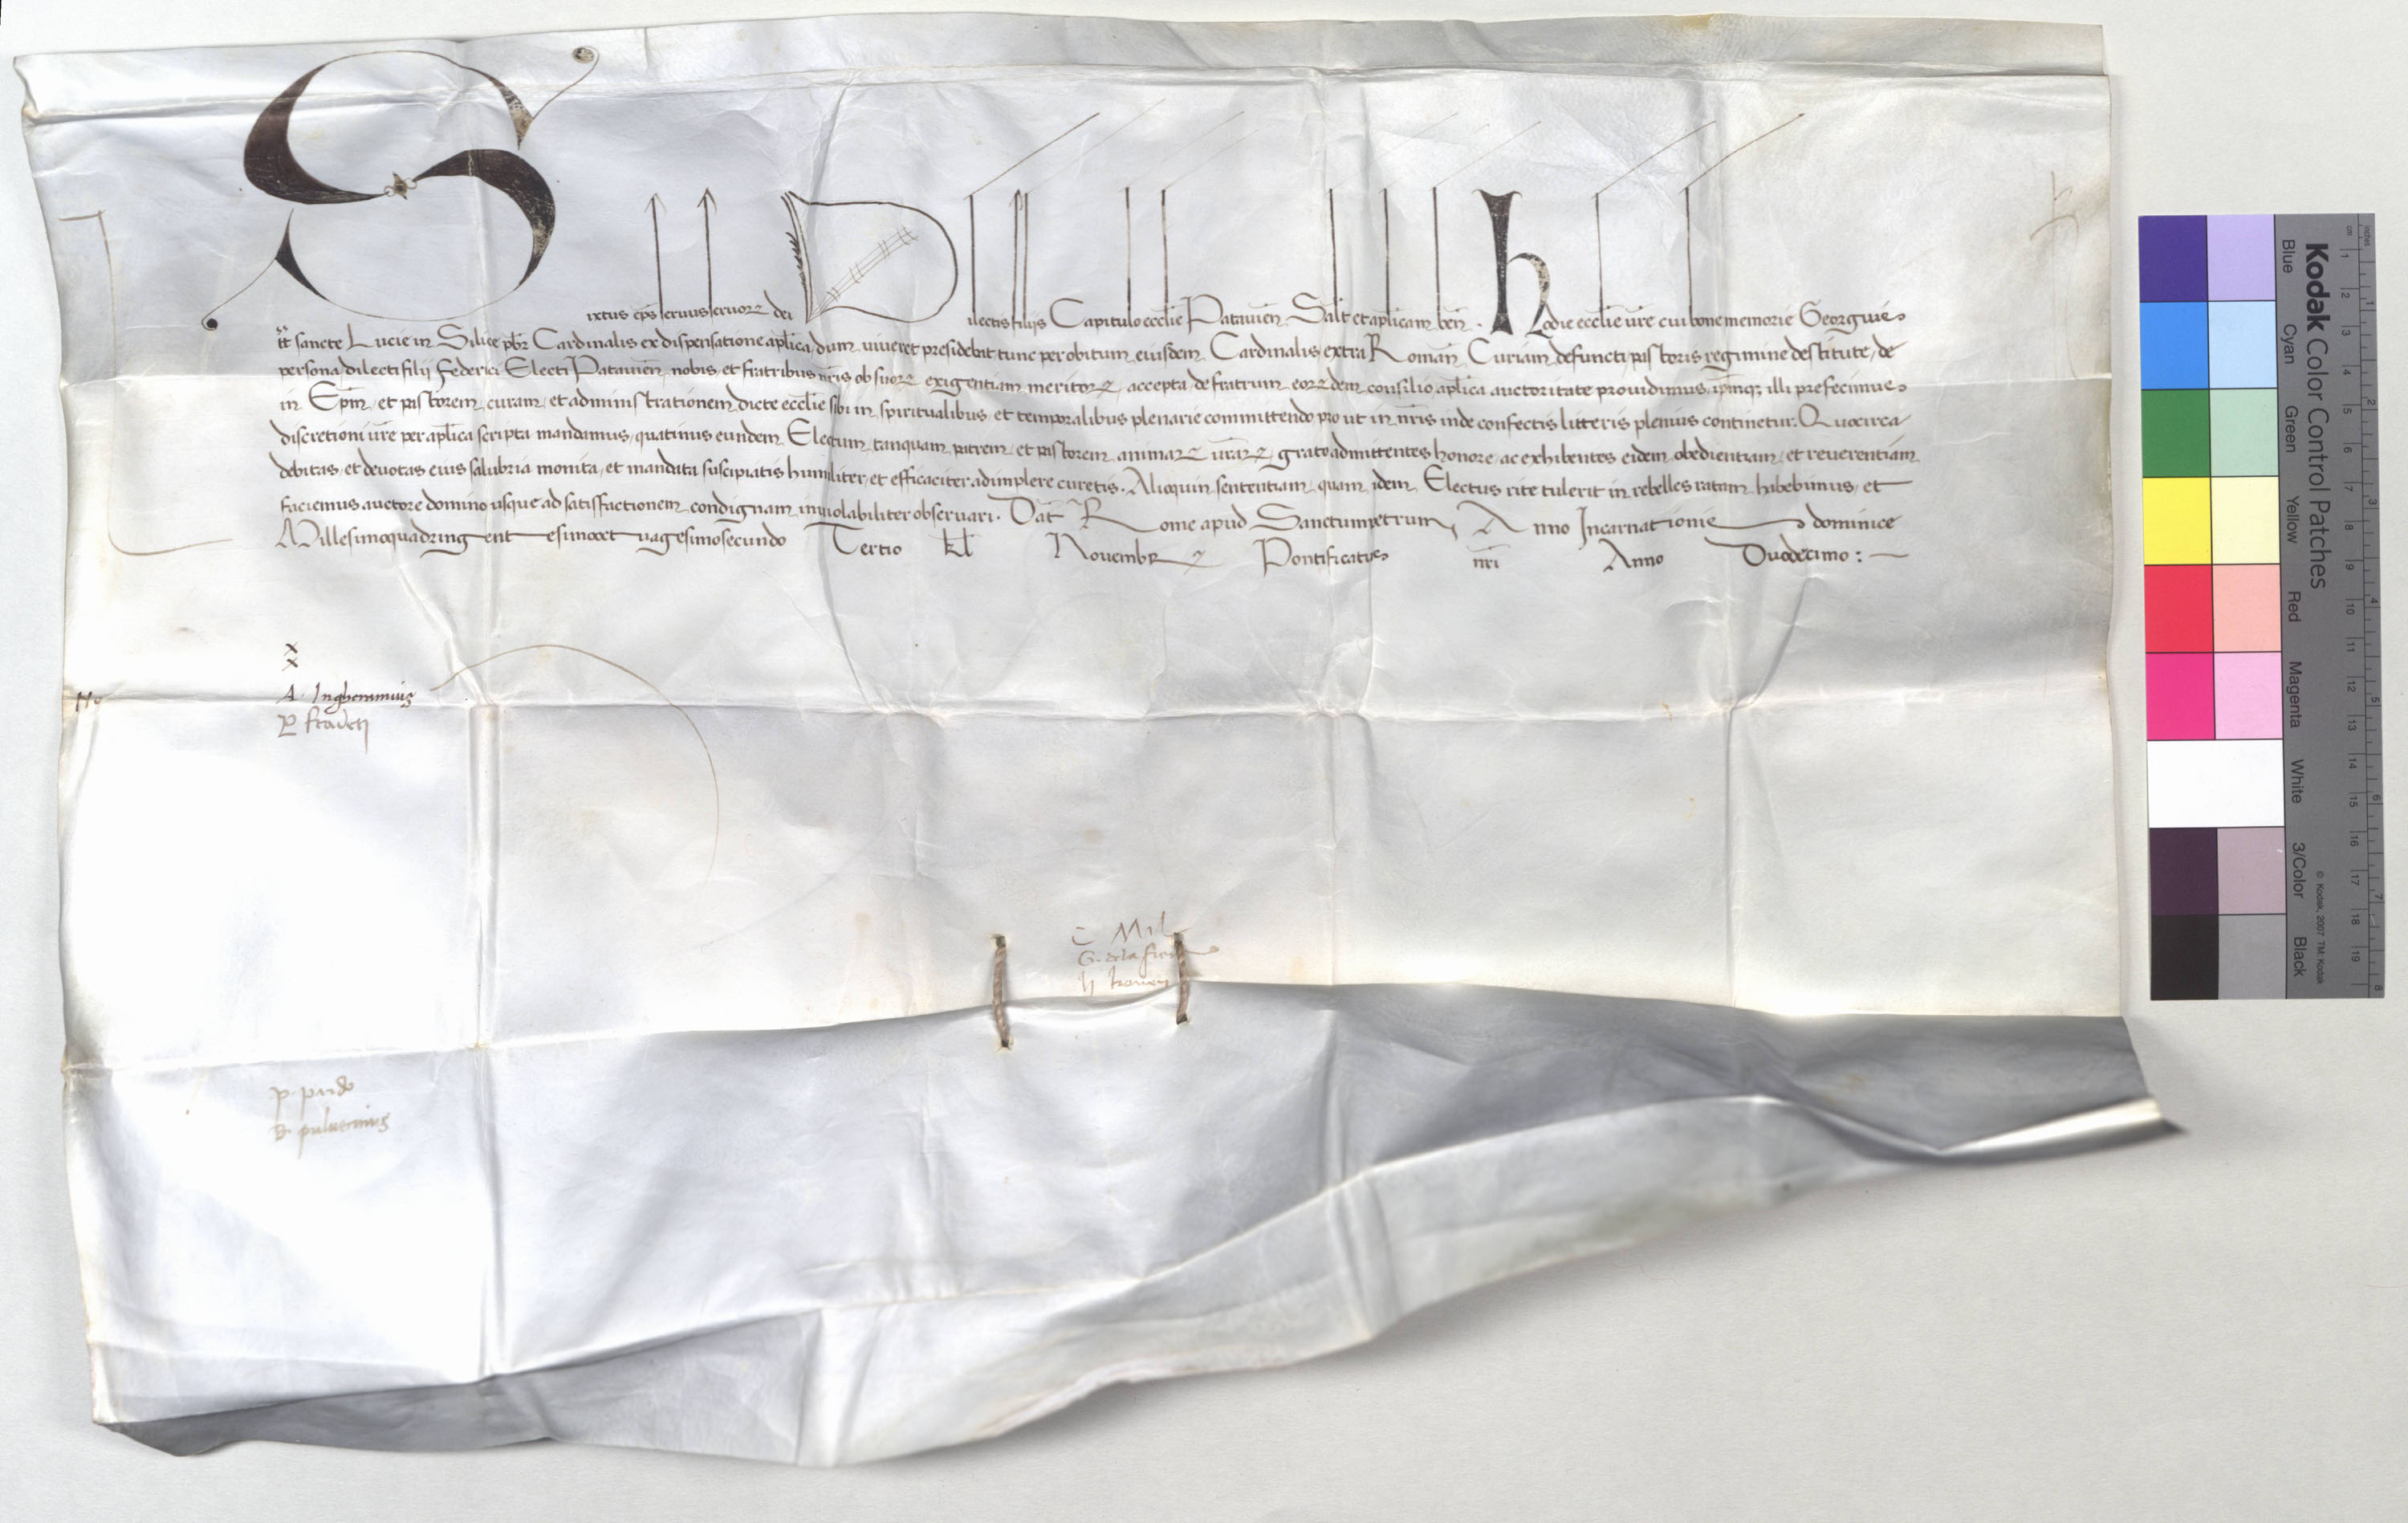 Sixtus ep̄s seruus seruorꝝ dei Dilectis filijs Capitulo ecclīe Patauien̄ Salt̄ et aplīcam ben̄. Hodie ecclīe ur̄e cui bone memorie Georgius
tt̄ sancte Lucie in Silice pbr̄ Cardinalis ex dispensatione aplīca, dum uiueret presidebat tunc per obitum eiusdem Cardinalis, extra Roman̄ Curiam defuncti, pastoris regimine destitute, de
persona dilecti filij Federici Electi Patauien̄, nobis, et fratribus nr̄is ob suorꝝ exigentiam meritorꝝ, accepta, de fratrum eorꝝdem consilio, aplīca auctoritate prouidimus, ipm̄qꝫ illi prefecimus
in Ep̄m, et pastorem, curam, et administrationem dicte ecclīe sibi in spiritualibus, et temporalibus plenarie committendo, pro ut in nr̄is inde confectis litteris plenius continetur. Quocirca
discretioni ur̄e per aplīca scripta mandamus, quatinus eundem Electum, tanquam patrem, et pastorem animarꝝ ur̄arꝝ, grato admittentes honore, ac exhibentes eidem obedientiam, et reuerentiam
debitas, et deuotas eius salubria monita, et mandata suscipiatis humiliter, et efficaciter adimplere curetis. Alioquin sententiam, quam idem Electus rite tulerit in rebelles ratam habebimus, et
faciemus auctore domino usque ad satisfactionem condignam inuiolabiliter obseruari. Dat̄ Rome apud Sanctumpetrum, Anno Incarnationis dominice
Millesimoquadringentesimooctuagesimosecundo Tertio kl̄ Nouembrꝝ Pontificatus nr̄i Anno Duodecimo :
x
x
A. Inghramius
P
C Mil
G. de la
h
p. pardo
B. puluerinus